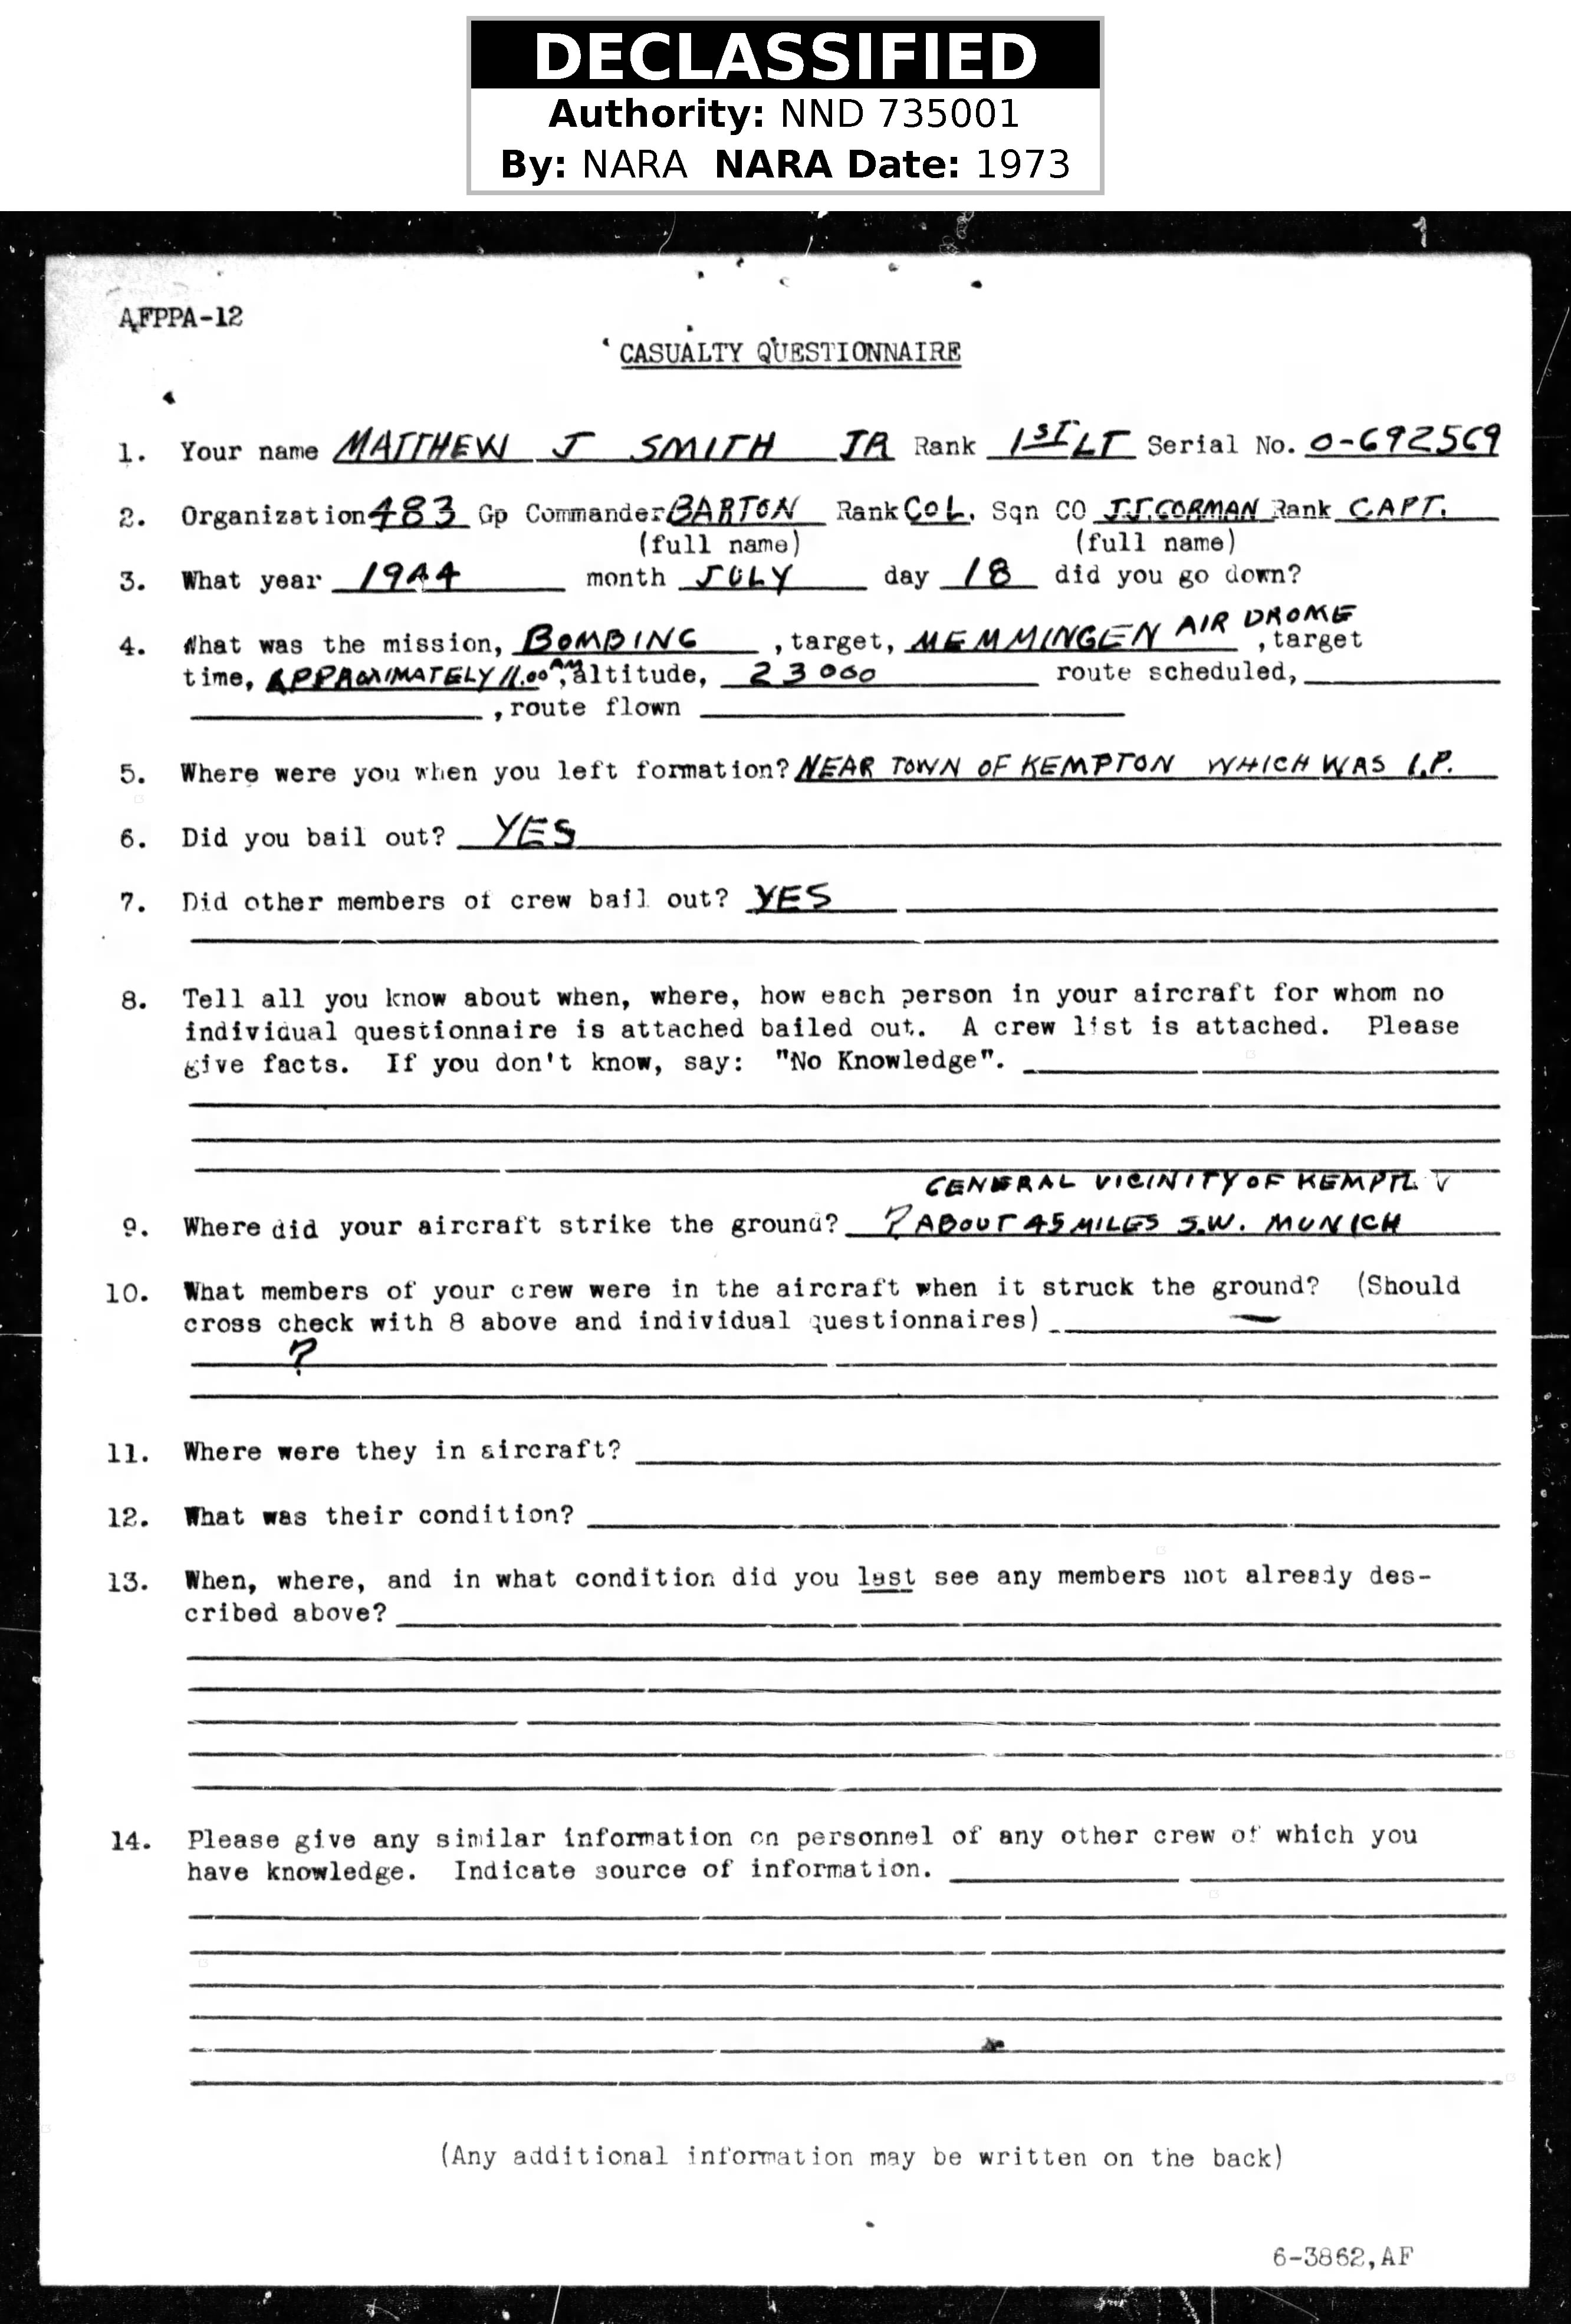 DECLASSIFIED
Authority: NND 735001
By: NARA NARA Date: 1973
AFPPA-12
CASUALTY QUESTIONNAIRE
1. Your name MATTHEW J SMITH JR Rank 1ST LT Serial No. O-692569
2. Organization 483 Gp Commander BARTON Rank COL. Sqn CO J.J. GORMAN Rank CAPT.
(full name) (full name)
3. What year 1944 month JULY day 18 did you go down?
4. What was the mission, BOMBING , target, MEMMINGEN AIR DROME , target
time, APPROXIMATELY 11.00 AM, altitude, 23000 route scheduled,
, route flown
5. Where were you when you left formation? NEAR TOWN OF KEMPTON WHICH WAS I.P.
6. Did you bail out? YES
7. Did other members of crew bail out? YES
8. Tell all you know about when, where, how each person in your aircraft for whom no
individual questionnaire is attached bailed out. A crew list is attached. Please
give facts. If you don't know, say: "No Knowledge".
GENERAL VICINITY OF
9. Where did your aircraft strike the ground? ? ABOUT 45 MILES S.W. MUNICH
10. What members of your crew were in the aircraft when it struck the ground? (Should
cross check with 8 above and individual questionnaires) —
?
11. Where were they in aircraft?
12. What was their condition?
13. When, where, and in what condition did you last see any members not already des-
cribed above?
14. Please give any similar information on personnel of any other crew of which you
have knowledge. Indicate source of information.
(Any additional information may be written on the back)
6-3862,AF